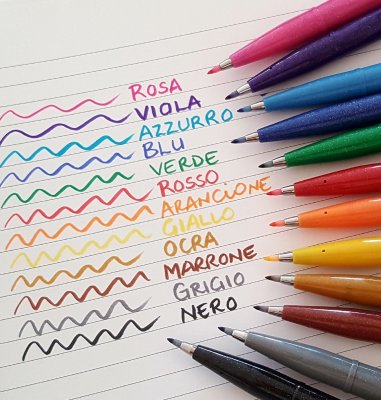 ROSA
VIOLA
AZZURRO
BLU
VERDE
ROSSO
ARANCIONE
GIALLO
OCRA
MARRONE
GRIGIO
NERO